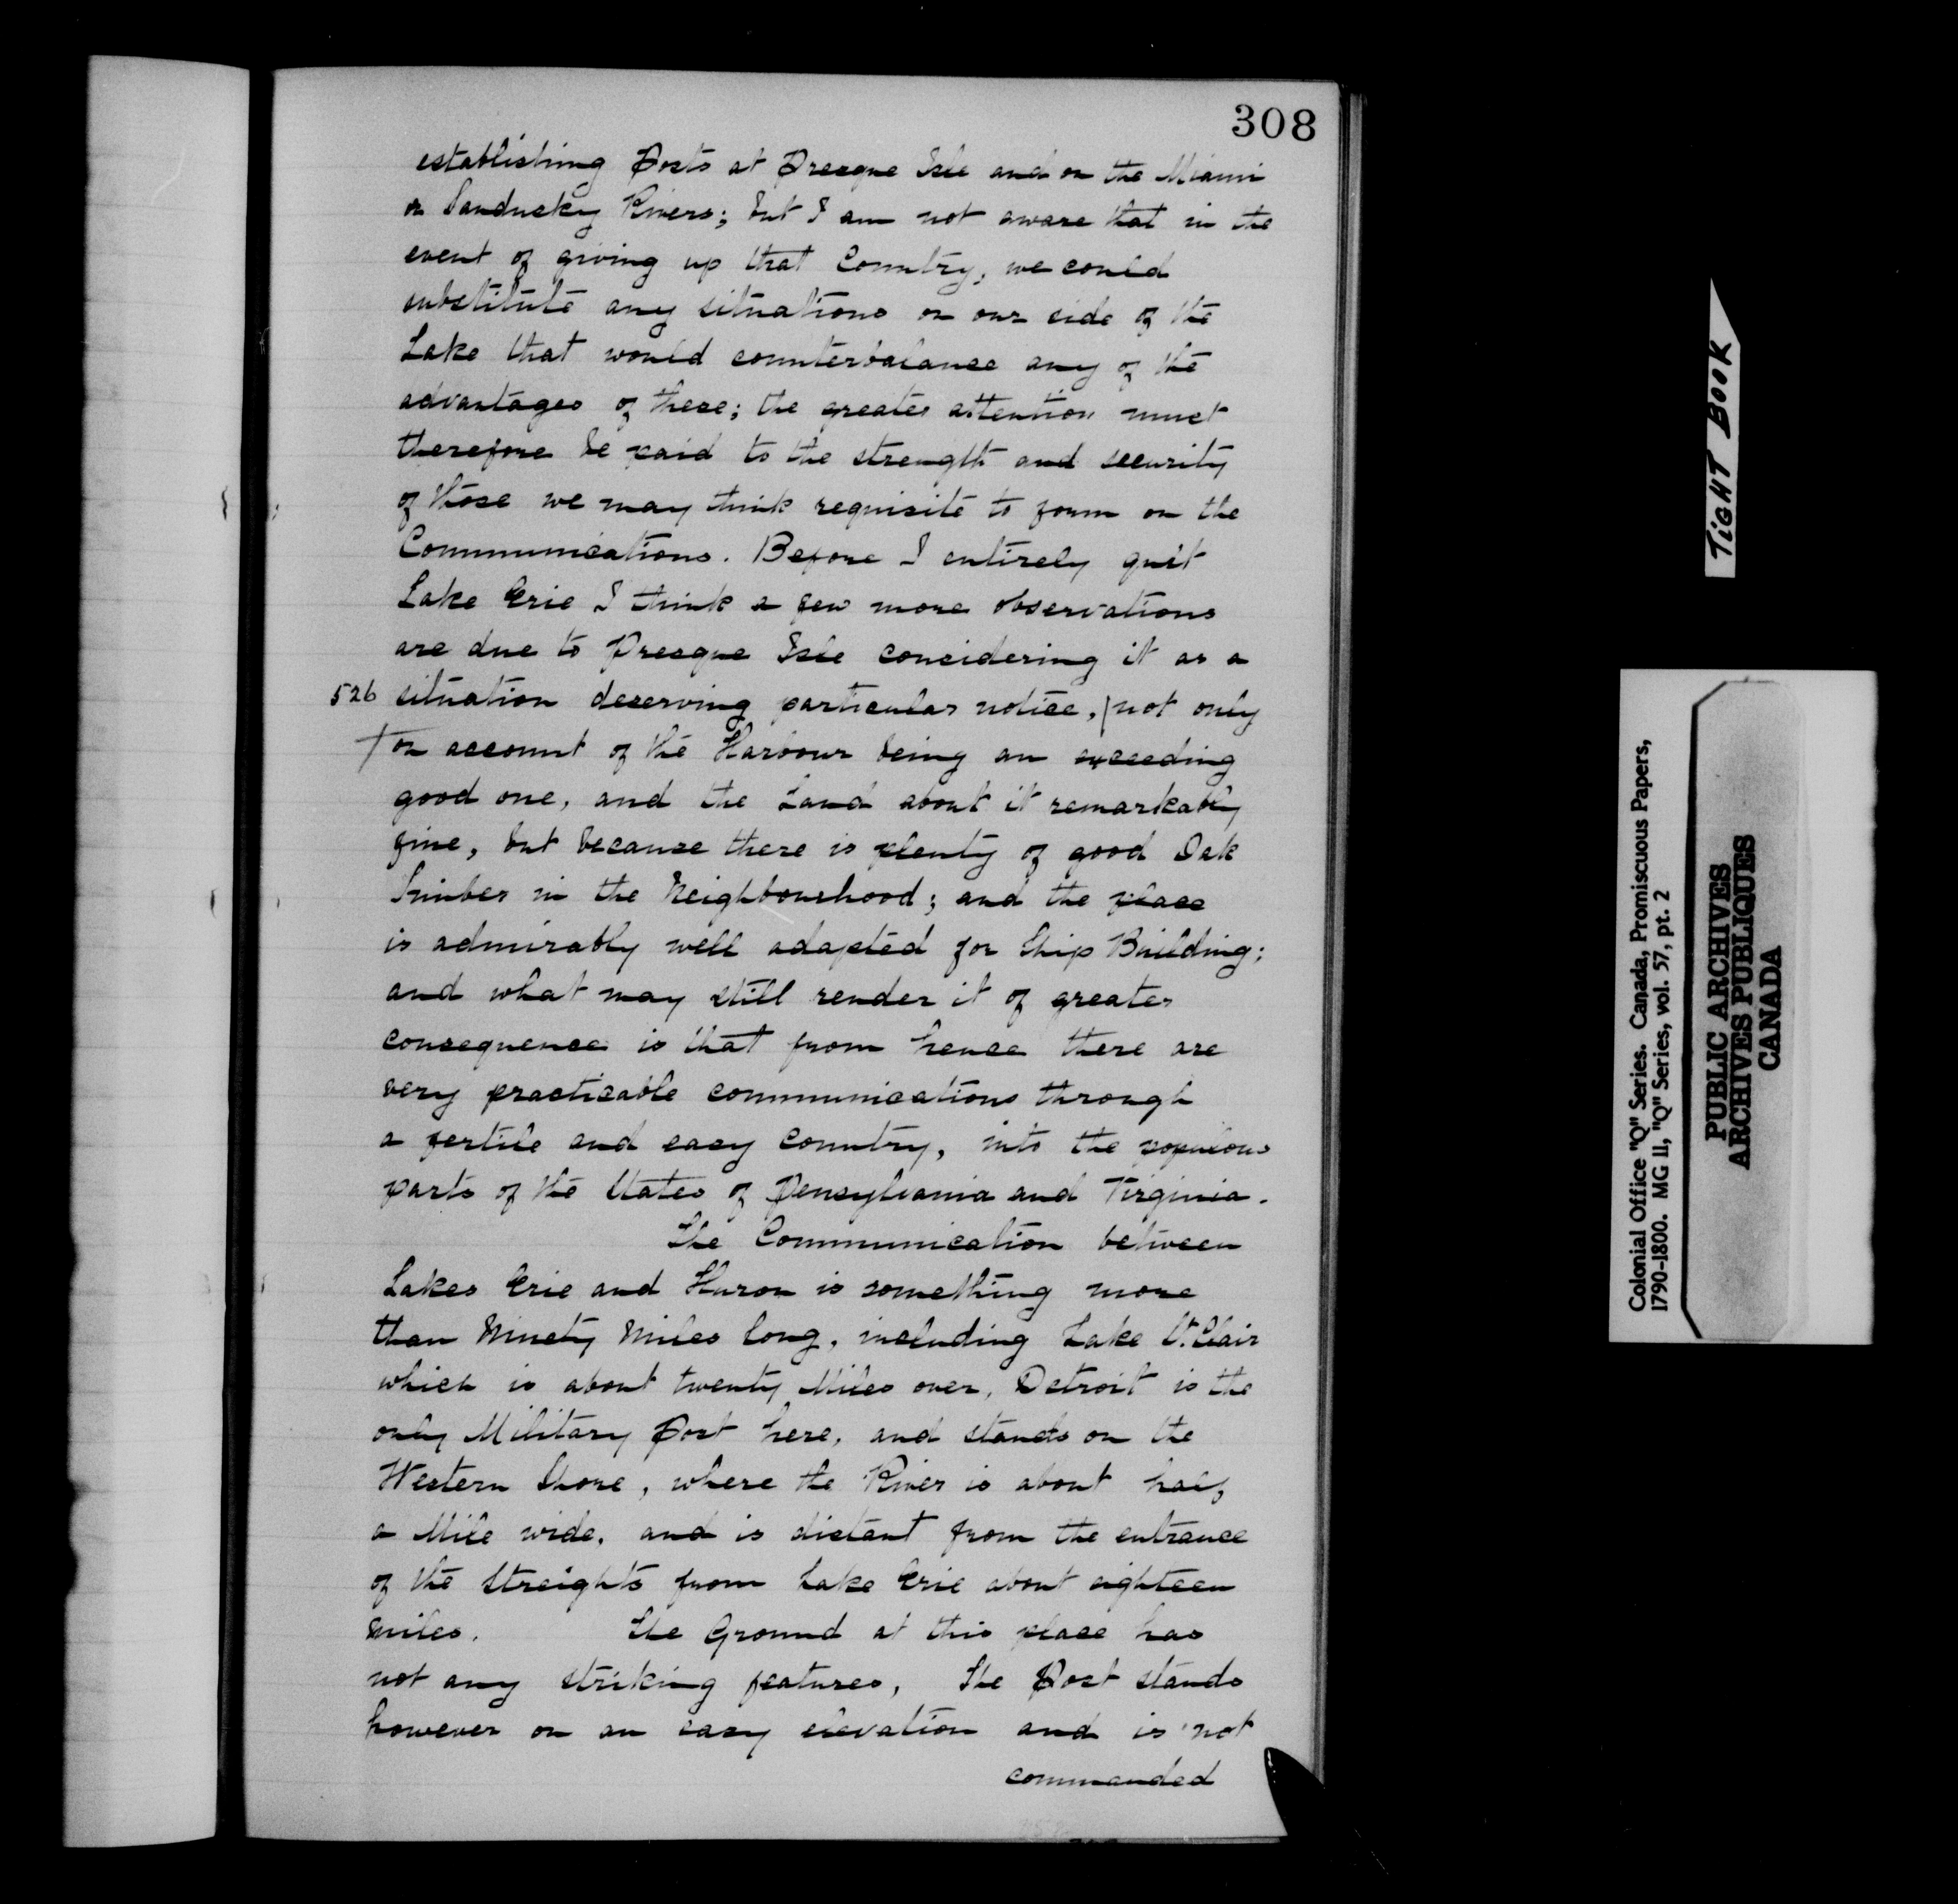 308
establishing Posts at Presque Isle and on the Miami
or Sandusky Rivers; but I am not aware that in the
event of giving up that Country, we could
substitute any situations on our side of the
Lake that would counterbalance any of the
advantages of these; the greater attention must
therefore be paid to the strength and security
of those we may think requisite to form on the
Communications. Before I entirely quit
Lake Erie I think a few more observations
are due to Presque Isle considering it as a
526 situation deserving particular notice, | not only
+ on account of the Harbour being an exceeding
good one, and the Land about it remarkably
fine, but because there is plenty of good Oak
Timber in the Neighbourhood; and the place
is admirably well adapted for Ship Building;
and what may still render it of greater
consequence is that from hence there are
very practicable communications through
a fertile and easy country, into the populous
parts of the States of Pensylvania and Virginia.
The Communication between
Lakes Erie and Huron is something more
than Ninety Miles long, including Lake St. Clair
which is about twenty Miles over, Detroit is the
only Military Post here, and stands on the
Western Shore, where the River is about half
a Mile wide, and is distant from the entrance
of the Streights from Lake Erie about eighteen
miles. The Ground at this place has
not any striking features, The Post stands
however on an easy elevation and is not
commanded
TIGHT BOOK
Colonial Office "Q" Series. Canada, Promiscuous Papers,
1790-1800. MG 11, "Q" Series, vol. 57, pt. 2
PUBLIC ARCHIVES
ARCHIVES PUBLIQUES
CANADA